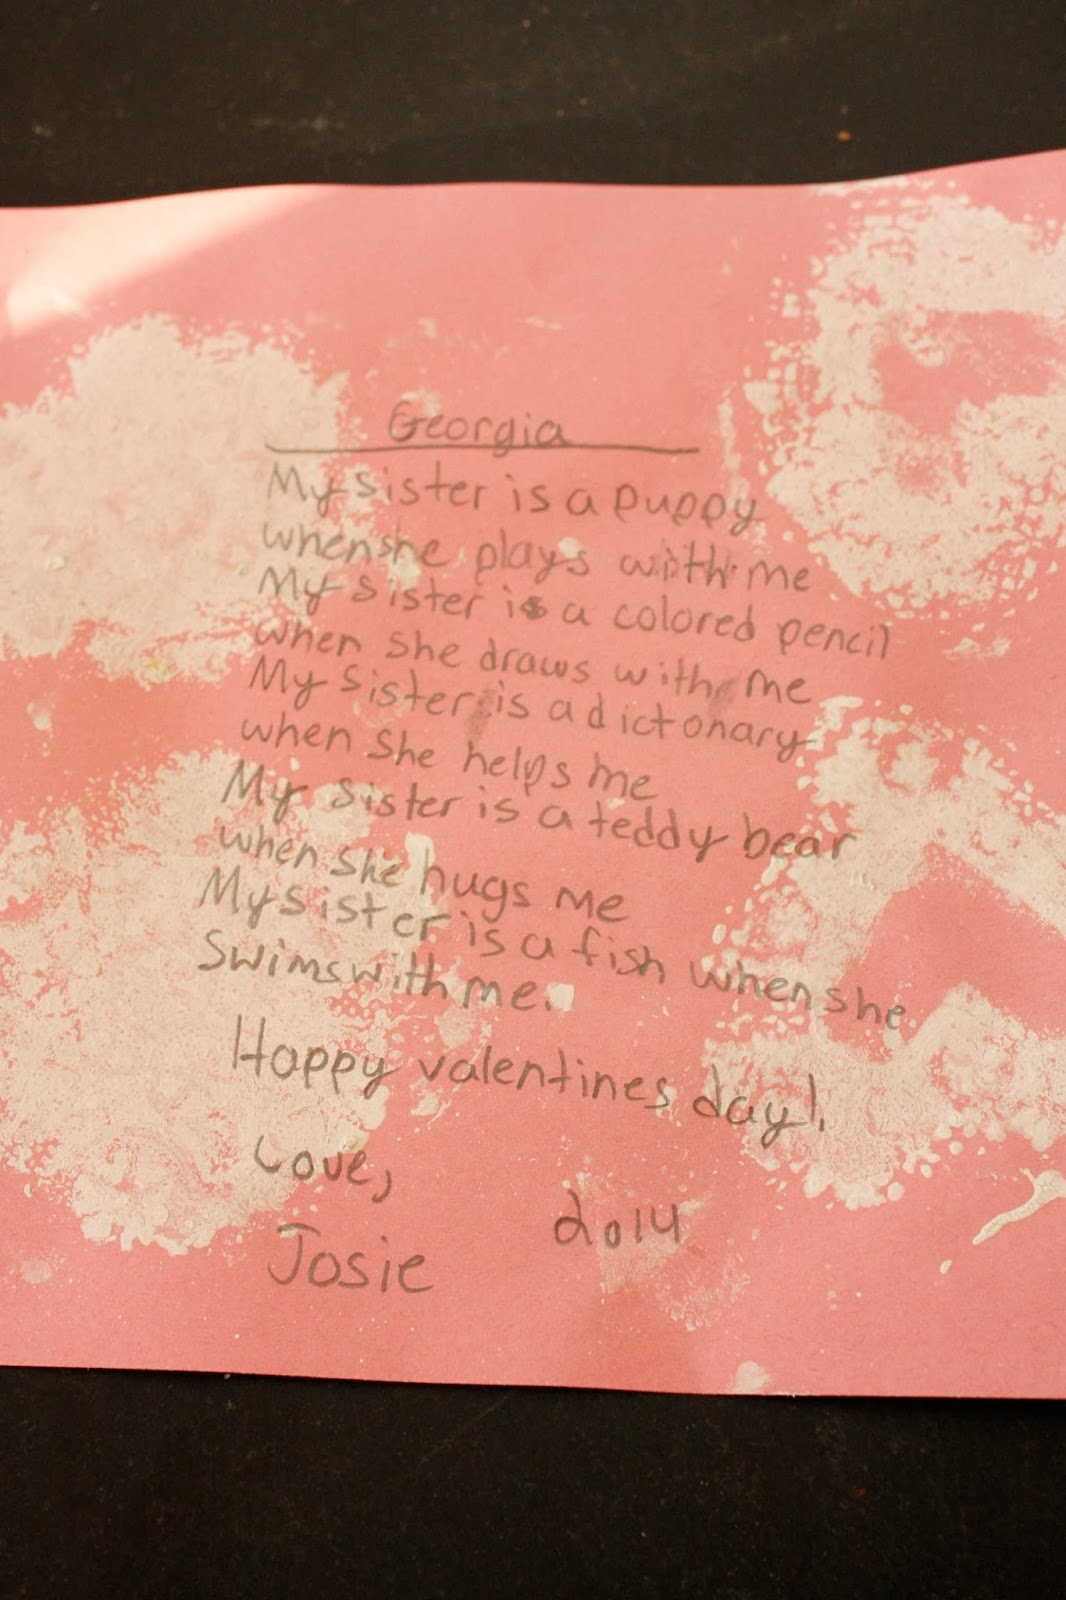 Georgia
My sister is a puppy
when she plays with me
My sister is a colored pencil
when she draws with me
My sister is a dictonary
when she helps me
My sister is a teddy bear
when she hugs me
My sister is a fish when she
swims with me.
Happy valentines day!
Love,
Josie 2014